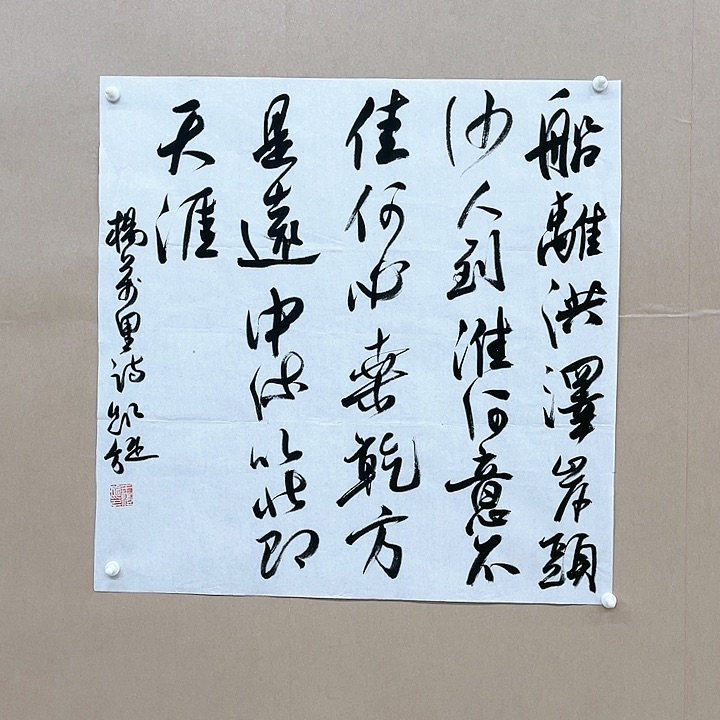 船離洪澤岸頭
沙人到淮河意不
佳何必桑乾方
是遠中流以北即
天涯
楊萬里詩